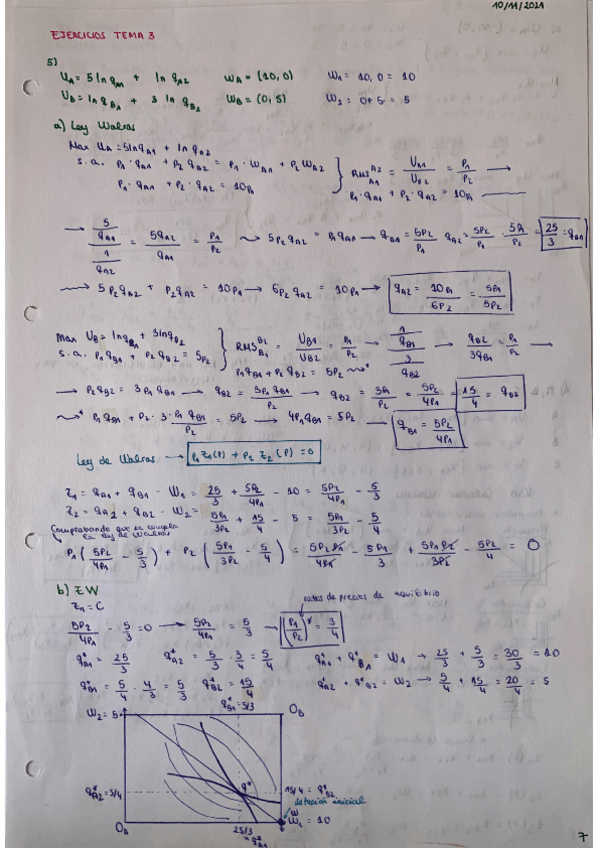 10/11/2021
EJERCICIOS TEMA 3
5)
U_A = 5 ln q_A1 + ln q_A2   W_A = (10, 0)   W_1 = 10, 0 = 10
U_B = ln q_B1 + 3 ln q_B2   W_B = (0, 5)   W_2 = 0 + 5 = 5
a) Ley Walras
Max U_A = 5 ln q_A1 + ln q_A2
s.a. P_1 · q_A1 + P_2 q_A2 = P_1 · W_A1 + P_2 W_A2
P_1 · q_A1 + P_2 · q_A2 = 10 P_1
RMS = U_A1/U_B2 = P_1/P_2 →
P_1 · q_A1 + P_2 · q_A2 = 10 P_1
→ (5/q_A1)/(1/q_A2) = 5q_A2/q_A1 = P_1/P_2 ⇝ 5P_2 q_A2 = P_1 q_A1 → q_A1 = 5P_2/P_1 q_A2 = 5P_2/P_1 · 5P_1/P_2 = 25/3 = q_A1
⇝ 5P_2 q_A2 + P_2 q_A2 = 10P_1 → 6P_2 q_A2 = 10P_1 → q_A2 = 10P_1/6P_2 = 5P_1/5P_2
Max U_B = ln q_B1 + 3 ln q_B2
s.a. P_1 q_B1 + P_2 q_B2 = 5P_2
RMS = U_B1/U_B2 = P_1/P_2 → (1/q_B1)/(3/q_B2) → q_B2/3q_B1 = P_1/P_2 →
P_1 q_B1 + P_2 q_B2 = 5P_2 ⇝*
→ P_2 q_B2 = 3P_1 q_B1 → q_B2 = 3P_1 q_B1/P_2 → q_B2 = 3P_1/P_2 = 5P_2/4P_1 = 15/4 = q_B2
⇝* P_1 q_B1 + P_2 · 3 · P_1 q_B1/P_2 = 5P_2 → 4P_1 q_B1 = 5P_2 → q_B1 = 5P_2/4P_1
Ley de Walras → P_1 Z_1(P) + P_2 Z_2(P) = 0
Z_1 = q_A1 + q_B1 - W_1 = 25/3 + 5P_2/4P_1 - 10 = 5P_2/4P_1 - 5/3
Z_2 = q_A2 + q_B2 - W_2 = 5P_1/3P_2 + 15/4 - 5 = 5P_1/3P_2 - 5/4
Comprobando que se cumple la ley de Walras
P_1 (5P_2/4P_1 - 5/3) + P_2 (5P_1/3P_2 - 5/4) = 5P_2P_1/4P_1 - 5P_1/3 + 5P_1P_2/3P_2 - 5P_2/4 = 0
b) EW
ratios de precios de equilibrio
Z_1 = 0
5P_2/4P_1 - 5/3 = 0 → 5P_2/4P_1 = 5/3 → (P_1/P_2)* = 3/4
q*_A1 = 25/3   q*_A2 = 5/3 · 3/4 = 5/4   q*_A1 + q*_B1 = W_1 → 25/3 + 5/3 = 30/3 = 10
q*_B1 = 5/4 · 4/3 = 5/3   q*_B2 = 15/4   q*_A2 + q*_B2 = W_2 → 5/4 + 15/4 = 20/4 = 5
q*_B1 = 5/3
W_2 = 5   O_B
q*_A2 = 5/4   q*   15/4 = q*_B2
dotación inicial
W
O_A   W_1 = 10
25/3
= q*_A1
7